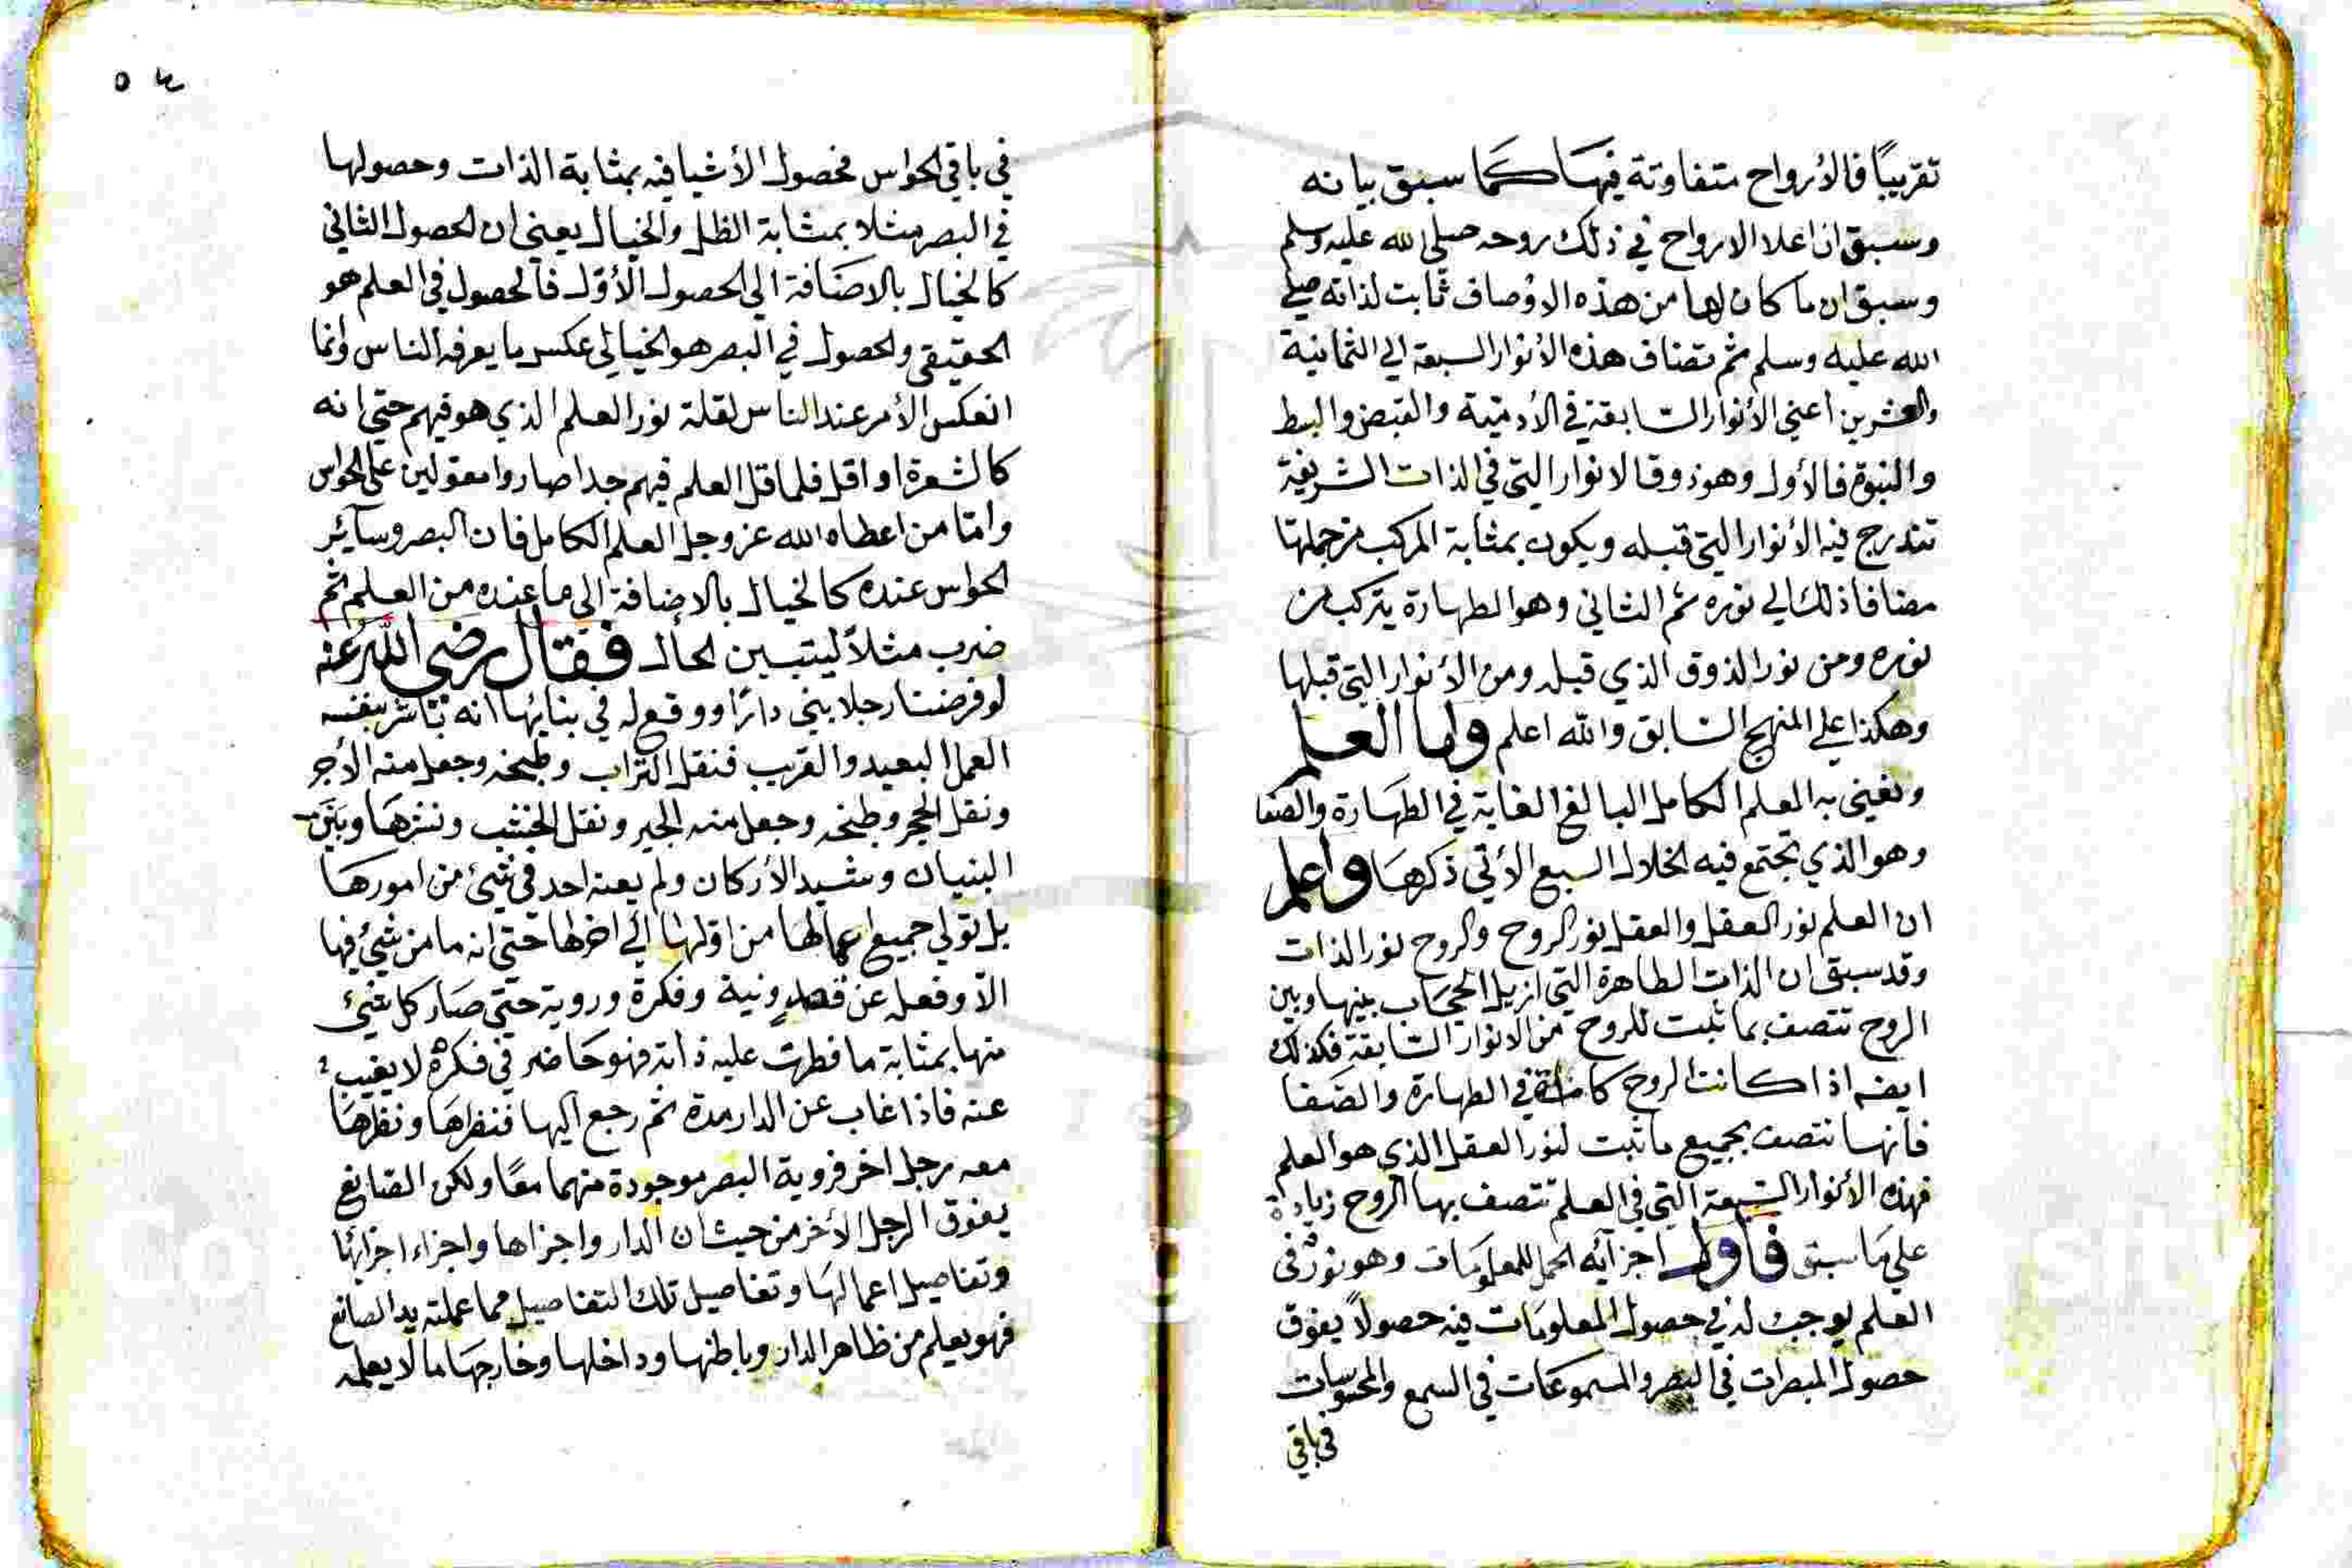 تقريبًا فالأرواح متفاوتة فيها كما سبق بيانه
وسبق ان اعلا الارواح في ذلك روحه صلى الله عليه وسلم
وسبق ان ما كان لها من هذه الاوصاف ثابت لذاته صلى
الله عليه وسلم ثم تضاف هذه الأنوار السبعة الى الثمانية
والعشرين اعني الأنوار السابقة في الأدمية والقبض والبسط
والنبوة فالأول وهو ذوق الانوار التي في الذات الشريفة
تندرج فيه الأنوار التي قبله ويكون بمثابة المركب من جملتها
مضافا ذلك الى نوره ثم الثاني وهو الطهارة يتركب من
نوره ومن نور الذوق الذي قبله ومن الأنوار التي قبلها
وهكذا على المنهج السابق والله اعلم واما العلم
ونعني به العلم الكامل البالغ الغاية في الطهارة والصفا
وهو الذي تجتمع فيه الخلال السبع الأتي ذكرها واعلم
ان العلم نور العقل والعقل نور الروح والروح نور الذات
وقد سبق ان الذات الطاهرة التي ازيل الحجاب بينها وبين
الروح تتصف بما ثبت للروح من الانوار السابقة فكذلك
ايضه اذا كانت الروح كاملة في الطهارة والصفا
فانها تتصف بجميع ما ثبت لنور العقل الذي هو العلم
فهذه الأنوار السبعة التي في العلم تتصف بها الروح زيادة
على ما سبق فأول اجزائه الحمل للمعلومات وهو نور في
العلم يوجب له في حصول المعلومات فيه حصولاً يفوق
حصول المبصرات في البصر والمسموعات في السمع والمحسوسات
في باقي
في باقي الحواس فحصول الأشيا فيه بمثابة الذات وحصولها
في البصر مثلا بمثابة الظل والخيال يعني ان الحصول الثاني
كالخيال بالاضافة الى الحصول الأول فالحصول في العلم هو
الحقيقي والحصول في البصر هو الخيالي عكس ما يعرفه الناس وانما
انعكس الأمر عند الناس لقلة نور العلم الذي هو فيهم حتى انه
كالشعرة او اقل فلما قل العلم فيهم جدا صاروا معولين على الحواس
وامّا من اعطاه الله عز وجل العلم الكامل فان البصر وسآئر
الحواس عنده كالخيال بالاضافة الى ما عنده من العلم ثم
ضرب مثلاً ليتبين الحال فقال رضي الله عنه
لو فرضنا رجلا بنى دارًا ووقع له في بنائها انه باشر بنفسه
العمل البعيد والقريب فنقل التراب وطبخه وجعل منه الأجر
ونقل الحجر وطبخه وجعل منه الجير ونقل الخشب ونشرها وبين
البنيان وشيد الأركان ولم يعنه احد في شئ من امورها
بل تولى جميع اعمالها من اولها الى اخرها حتى انه ما من شئ فيها
الاّ وفعله عن قصد ونية وفكرة وروية حتى صار كل شئ
منها بمثابة ما فطرت عليه ذاته فهو حاضر في فكره لا يغيب
عنه فاذا غاب عن الدار مدة ثم رجع اليها فنظرها ونظرها
معه رجل اخر فروية البصر موجودة منهما معًا ولكن الصانع
يفوق الرجل الأخر من حيث ان الدار واجزاها واجزاء اجزائها
وتفاصيل اعمالها وتفاصيل تلك التفاصيل مما عملته يد الصانع
فهو يعلم من ظاهر الدار وباطنها وداخلها وخارجها ما لا يعلمه